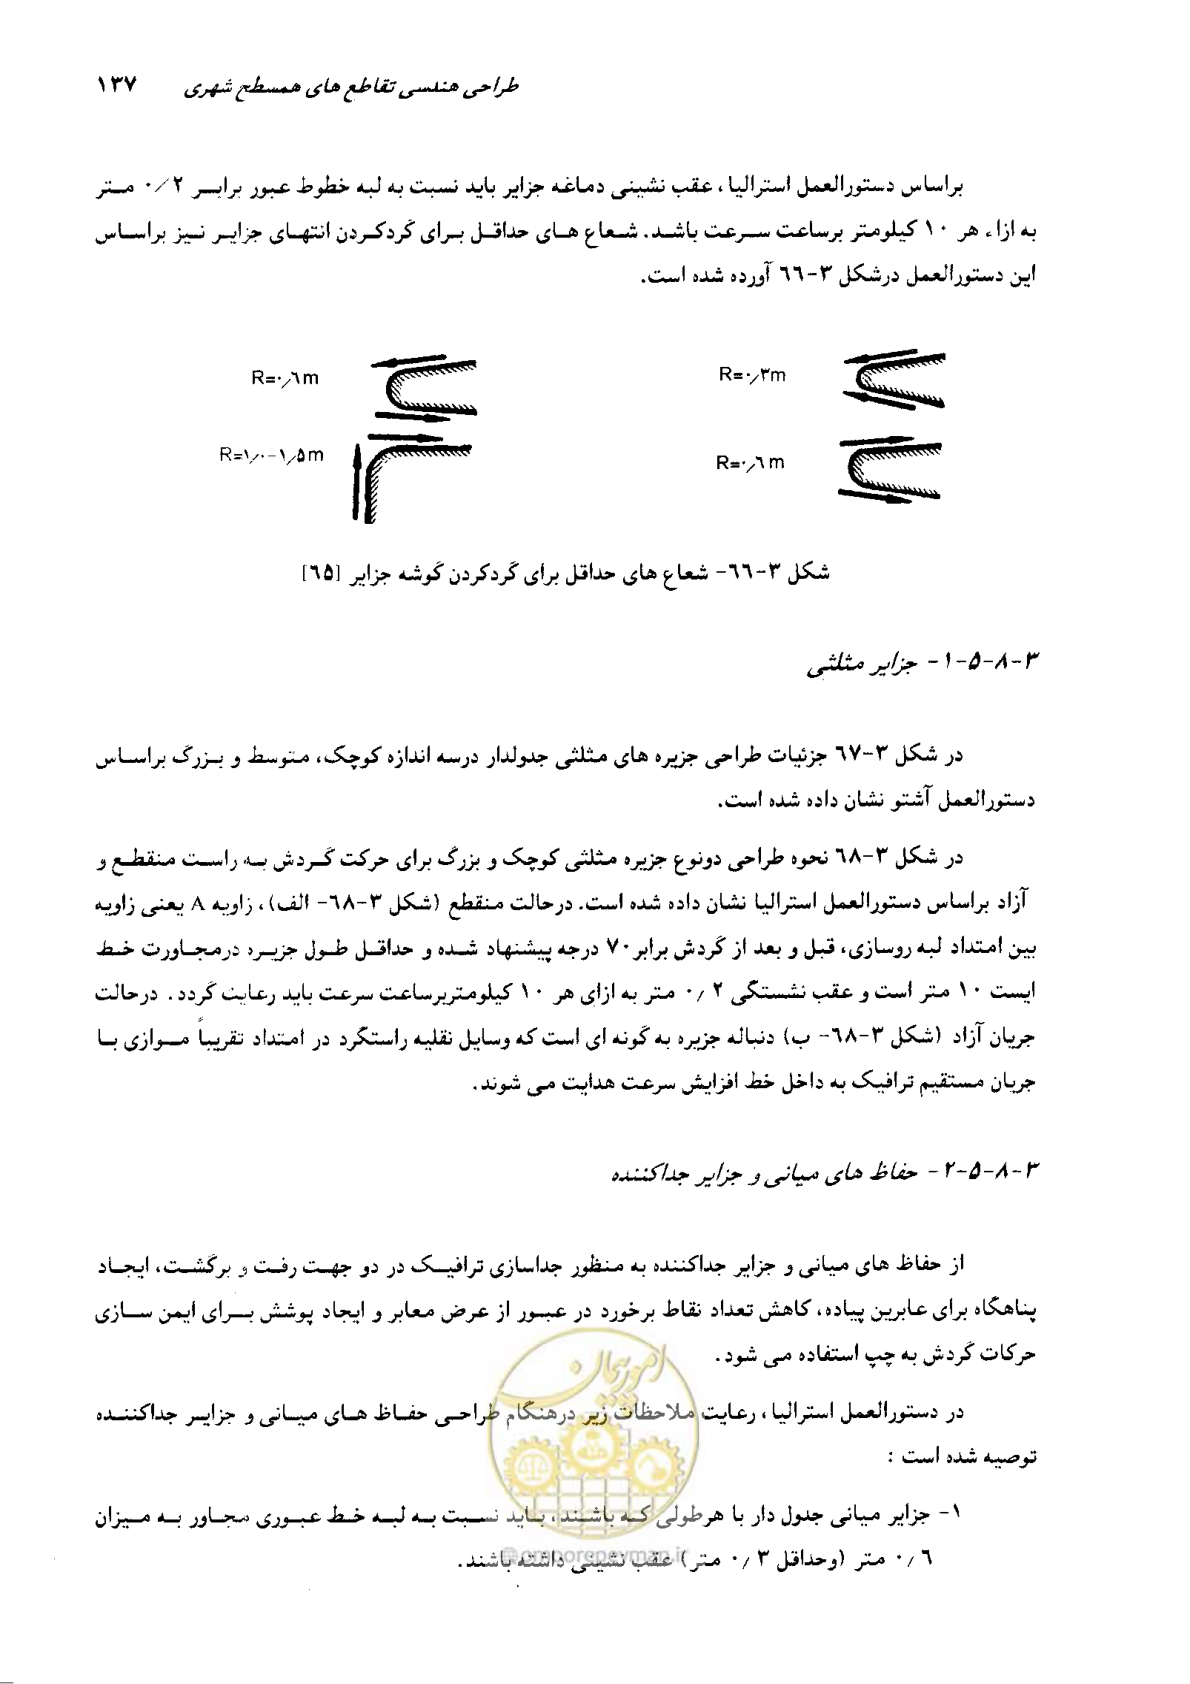 طراحی هندسی تقاطع های همسطح شهری ۱۳۷
براساس دستورالعمل استرالیا، عقب نشینی دماغه جزایر باید نسبت به لبه خطوط عبور برابر ۰/۲ متر
به ازاء هر ۱۰ کیلومتر برساعت سرعت باشد. شعاع های حداقل برای گردکردن انتهای جزایر نیز براساس
این دستورالعمل درشکل ۳-۶۶ آورده شده است.
R=۰٫۳m
R=۰٫۶m
R=۰٫۶m
R=۱٫۰-۱٫۵m
شکل ۳-۶۶- شعاع های حداقل برای گردکردن گوشه جزایر [۶۵]
۳-۸-۵-۱- جزایر مثلثی
در شکل ۳-۶۷ جزئیات طراحی جزیره های مثلثی جدولدار درسه اندازه کوچک، متوسط و بزرگ براساس
دستورالعمل آشتو نشان داده شده است.
در شکل ۳-۶۸ نحوه طراحی دونوع جزیره مثلثی کوچک و بزرگ برای حرکت گردش به راست منقطع و
آزاد براساس دستورالعمل استرالیا نشان داده شده است. درحالت منقطع (شکل ۳-۶۸- الف)، زاویه A یعنی زاویه
بین امتداد لبه روسازی، قبل و بعد از گردش برابر۷۰ درجه پیشنهاد شده و حداقل طول جزیره درمجاورت خط
ایست ۱۰ متر است و عقب نشستگی ۰٫۲ متر به ازای هر ۱۰ کیلومتربرساعت سرعت باید رعایت گردد. درحالت
جریان آزاد (شکل ۳-۶۸- ب) دنباله جزیره به گونه ای است که وسایل نقلیه راستگرد در امتداد تقریباً موازی با
جریان مستقیم ترافیک به داخل خط افزایش سرعت هدایت می شوند.
۳-۸-۵-۲- حفاظ های میانی و جزایر جداکننده
از حفاظ های میانی و جزایر جداکننده به منظور جداسازی ترافیک در دو جهت رفت و برگشت، ایجاد
پناهگاه برای عابرین پیاده، کاهش تعداد نقاط برخورد در عبور از عرض معابر و ایجاد پوشش برای ایمن سازی
حرکات گردش به چپ استفاده می شود.
امورپیمان
در دستورالعمل استرالیا، رعایت ملاحظات زیر درهنگام طراحی حفاظ های میانی و جزایر جداکننده
توصیه شده است :
۱- جزایر میانی جدول دار با هرطولی که باشند، باید نسبت به لبه خط عبوری مجاور به میزان
۰٫۶ متر (وحداقل ۰٫۳ متر) عقب نشینی داشته باشند.
@omoorepeyman.ir